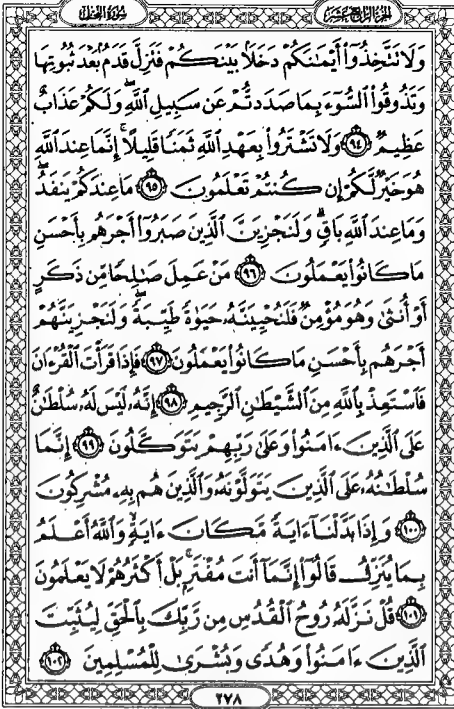 سُورَةُ النَّحْلِ
الجُزْءُ الرَّابِعَ عَشَرَ
وَلَا تَتَّخِذُوٓا۟ أَيْمَٰنَكُمْ دَخَلًۢا بَيْنَكُمْ فَتَزِلَّ قَدَمٌۢ بَعْدَ ثُبُوتِهَا
وَتَذُوقُوا۟ ٱلسُّوٓءَ بِمَا صَدَدتُّمْ عَن سَبِيلِ ٱللَّهِ ۖ وَلَكُمْ عَذَابٌ
عَظِيمٌ ﴿٩٤﴾ وَلَا تَشْتَرُوا۟ بِعَهْدِ ٱللَّهِ ثَمَنًا قَلِيلًا ۚ إِنَّمَا عِندَ ٱللَّهِ
هُوَ خَيْرٌ لَّكُمْ إِن كُنتُمْ تَعْلَمُونَ ﴿٩٥﴾ مَا عِندَكُمْ يَنفَدُ ۖ
وَمَا عِندَ ٱللَّهِ بَاقٍ ۗ وَلَنَجْزِيَنَّ ٱلَّذِينَ صَبَرُوٓا۟ أَجْرَهُم بِأَحْسَنِ
مَا كَانُوا۟ يَعْمَلُونَ ﴿٩٦﴾ مَنْ عَمِلَ صَٰلِحًا مِّن ذَكَرٍ
أَوْ أُنثَىٰ وَهُوَ مُؤْمِنٌ فَلَنُحْيِيَنَّهُۥ حَيَوٰةً طَيِّبَةً ۖ وَلَنَجْزِيَنَّهُمْ
أَجْرَهُم بِأَحْسَنِ مَا كَانُوا۟ يَعْمَلُونَ ﴿٩٧﴾ فَإِذَا قَرَأْتَ ٱلْقُرْءَانَ
فَٱسْتَعِذْ بِٱللَّهِ مِنَ ٱلشَّيْطَٰنِ ٱلرَّجِيمِ ﴿٩٨﴾ إِنَّهُۥ لَيْسَ لَهُۥ سُلْطَٰنٌ
عَلَى ٱلَّذِينَ ءَامَنُوا۟ وَعَلَىٰ رَبِّهِمْ يَتَوَكَّلُونَ ﴿٩٩﴾ إِنَّمَا
سُلْطَٰنُهُۥ عَلَى ٱلَّذِينَ يَتَوَلَّوْنَهُۥ وَٱلَّذِينَ هُم بِهِۦ مُشْرِكُونَ
﴿١٠٠﴾ وَإِذَا بَدَّلْنَآ ءَايَةً مَّكَانَ ءَايَةٍ ۙ وَٱللَّهُ أَعْلَمُ
بِمَا يُنَزِّلُ قَالُوٓا۟ إِنَّمَآ أَنتَ مُفْتَرٍۭ ۚ بَلْ أَكْثَرُهُمْ لَا يَعْلَمُونَ
﴿١٠١﴾ قُلْ نَزَّلَهُۥ رُوحُ ٱلْقُدُسِ مِن رَّبِّكَ بِٱلْحَقِّ لِيُثَبِّتَ
ٱلَّذِينَ ءَامَنُوا۟ وَهُدًى وَبُشْرَىٰ لِلْمُسْلِمِينَ ﴿١٠٢﴾
٢٧٨